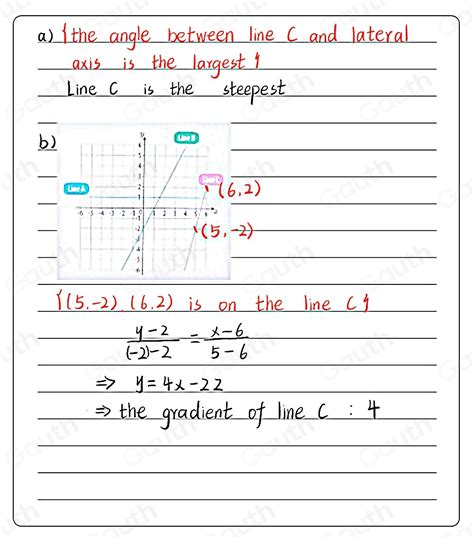 a) {the angle between line C and lateral
axis is the largest}
Line C is the steepest
b)
Line B
Line A
(6,2)
(5,-2)
{(5,-2), (6,2) is on the line C}
y-2 / (-2)-2 = x-6 / 5-6
⇒ y=4x-22
⇒ the gradient of line C : 4
Gauth